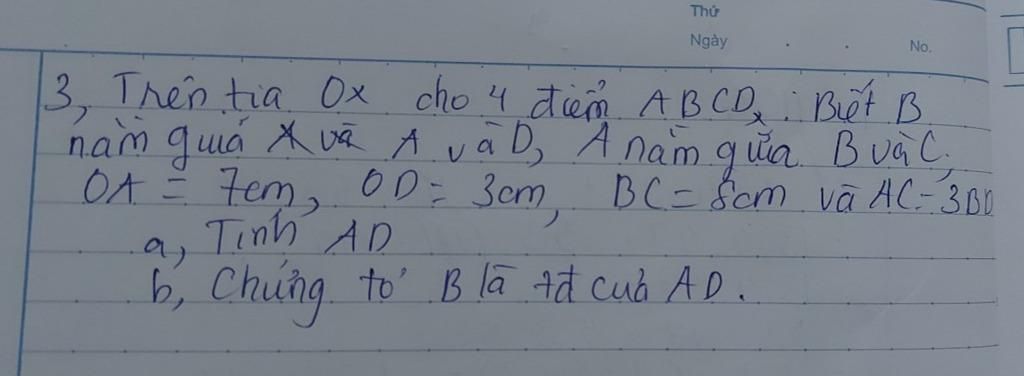 Thứ
Ngày . . No.
3, Trên tia Ox cho 4 điểm ABCD. Biết B
nằm giữa A và D, A nằm giữa B và C,
OA = 7cm, OD = 3cm, BC = 8cm và AC = 3BD
a, Tính AD
b, Chứng tỏ B là tđ của AD.